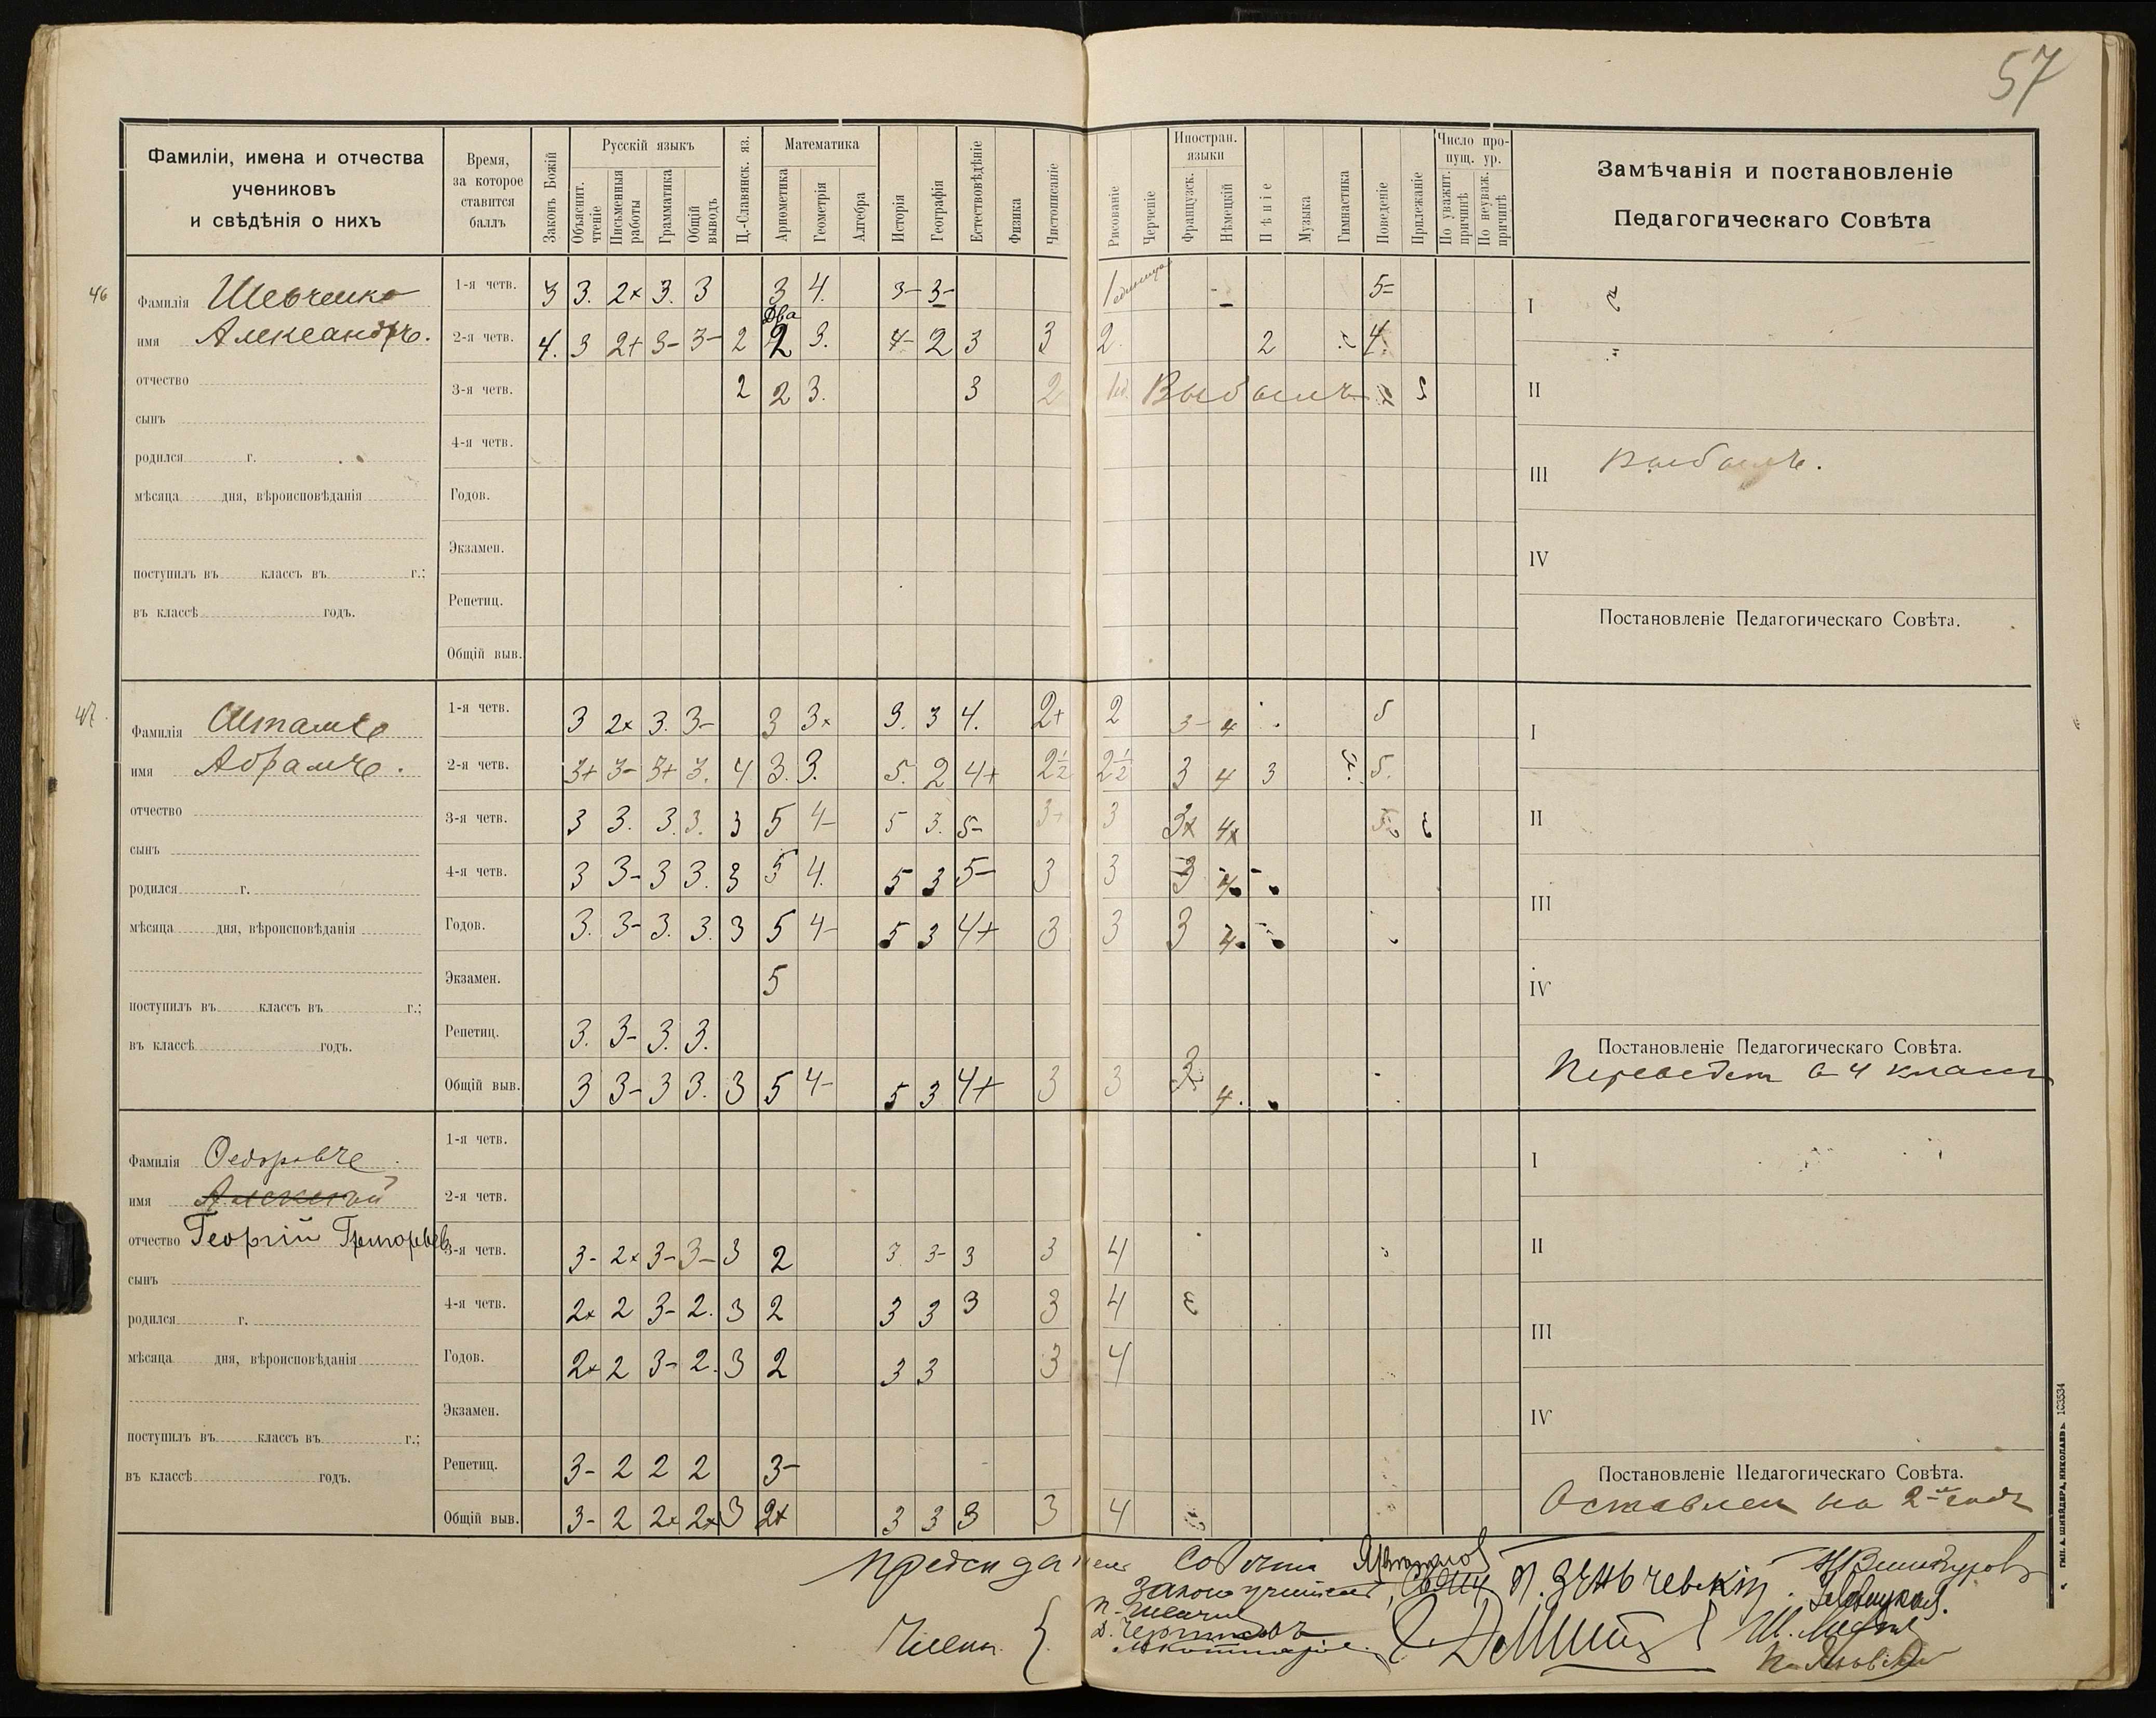 57
Фамиліи, имена и отчества
учениковъ
и свѣдѣнія о нихъ
Время,
за которое
ставится
баллъ
Законъ Божій
Русскій языкъ
Объяснит. чтеніе
Письменныя работы
Грамматика
Общій выводъ
Ц.-Славянск. яз.
Математика
Ариѳметика
Геометрія
Алгебра
Исторія
Географія
Естествовѣдѣніе
Физика
Чистописаніе
Рисованіе
Черченіе
Иностран. языки
Французск.
Нѣмецкій
Пѣніе
Музыка
Гимнастика
Поведеніе
Прилежаніе
Число про-
пущ. ур.
По уважит. причинѣ
По неуваж. причинѣ
Замѣчанія и постановленіе
Педагогическаго Совѣта
46
Фамилія Шевченко
имя Александръ.
отчество
сынъ
родился г.
мѣсяца дня, вѣроисповѣданія
поступилъ въ классъ въ г.;
въ классѣ годъ.
1-я четв. 3 3. 2× 3. 3 3 4. 3- 3- 1 единица 5=
Два
2-я четв. 4. 3 2+ 3- 3- 2 2 3. 4- 2 3 3 2. 2 4.
3-я четв. 2 2 3. 3 2 1 Выбылъ
4-я четв.
Годов.
Экзамен.
Репетиц.
Общій выв.
I
II
III Выбылъ.
IV
Постановленіе Педагогическаго Совѣта.
47.
Фамилія Штамъ
имя Абрамъ.
отчество
сынъ
родился г.
мѣсяца дня, вѣроисповѣданія
поступилъ въ классъ въ г.;
въ классѣ годъ.
1-я четв. 3 2× 3. 3- 3 3× 3. 3 4. 2+ 2 3- 4 5
2-я четв. 3+ 3- 3+ 3. 4 3. 3. 5. 2 4+ 2½ 2½ 3 4 3 5.
3-я четв. 3 3. 3. 3. 3 5 4- 5 3. 5- 3+ 3 3× 4× 5
4-я четв. 3 3- 3 3. 3 5 4. 5 3 5- 3 3 3 4.
Годов. 3. 3- 3. 3. 3 5 4- 5 3 4+ 3 3 3 4.
Экзамен. 5
Репетиц. 3. 3- 3. 3.
Общій выв. 3 3- 3 3. 3 5 4- 5 3 4+ 3 3 3 4.
I
II
III
IV
Постановленіе Педагогическаго Совѣта.
Переведен в 4 класс
Фамилія Федоровъ
имя Алексѣй
отчество Георгій Григорьев
сынъ
родился г.
мѣсяца дня, вѣроисповѣданія
поступилъ въ классъ въ г.;
въ классѣ годъ.
1-я четв.
2-я четв.
3-я четв. 3- 2× 3- 3- 3 2 3 3- 3 3 4
4-я четв. 2× 2 3- 2. 3 2 3 3 3 3 4
Годов. 2× 2 3- 2. 3 2 3 3 3 4
Экзамен.
Репетиц. 3- 2 2 2 3-
Общій выв. 3- 2 2× 2× 3 2× 3 3 3 3 4
I
II
III
IV
Постановленіе Педагогическаго Совѣта.
Оставлен на 2-й годъ
Председатель Совета
Законоучитель
Члены {
Тип. А. Шнейдера, Николаевъ. 103534